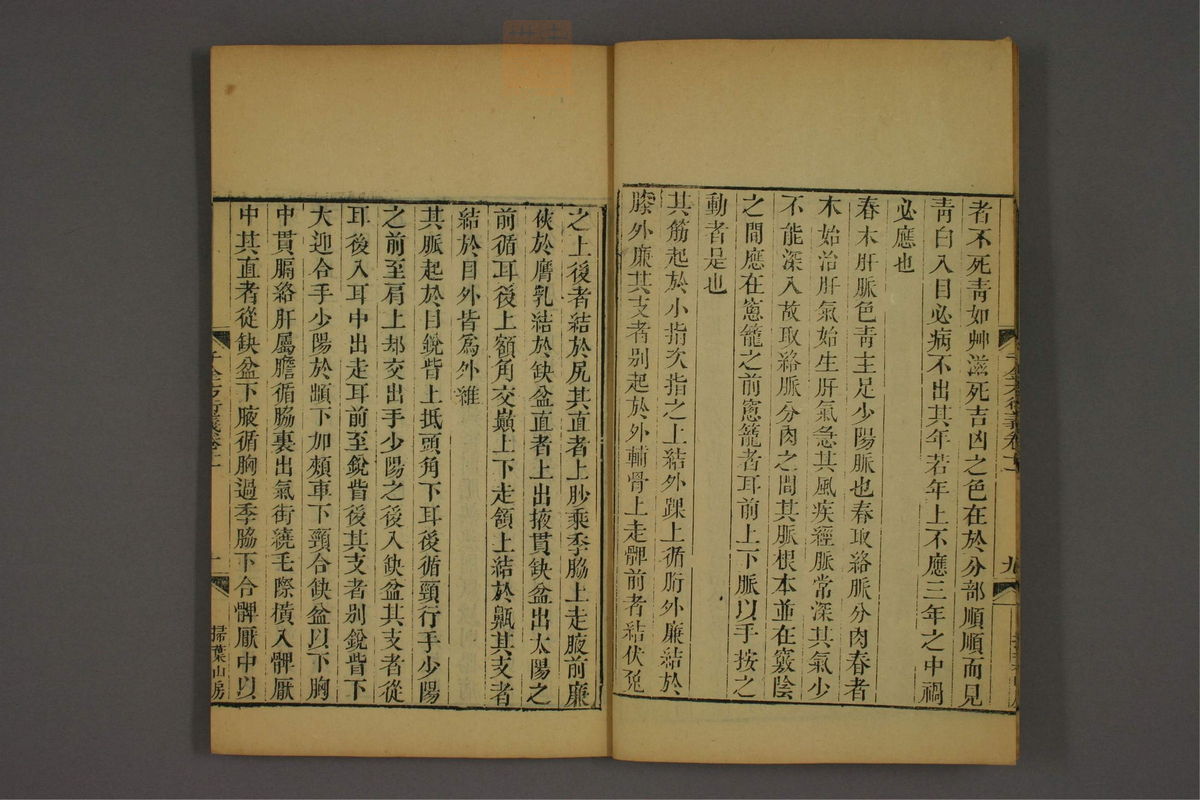 者不死靑如艸滋死吉凶之色在於分部順順而見
靑白入目必病不出其年若年上不應三年之中禍
必應也
春木肝脈色靑主足少陽脈也春取絡脈分肉春者
木始治肝氣始生肝氣急其風疾經脈常深其氣少
不能深入故取絡脈分肉之間其脈根本並在竅陰
之間應在窻籠之前窻籠者耳前上下脈以手按之
動者是也
其筋起於小指次指之上結外踝上循胻外廉結於
膝外廉其支者别起於外輔骨上走髀前者結伏兔
之上後者結於尻其直者上䏚乘季脇上走腋前廉
俠於膺乳結於缺盆直者上出掖貫缺盆出太陽之
前循耳後上額角交巔上下走頷上結於鼽其支者
結於目外眥爲外維
其脈起於目銳眥上抵頭角下耳後循頸行手少陽
之前至肩上却交出手少陽之後入缺盆其支者從
耳後入耳中出走耳前至銳眥後其支者别銳眥下
大迎合手少陽於䪼下加頰車下頸合缺盆以下胸
中貫膈絡肝屬膽循脇裏出氣街繞毛際橫入髀厭
中其直者從缺盆下腋循胸過季脇下合髀厭中以
千金方衍義卷十一
掃葉山房